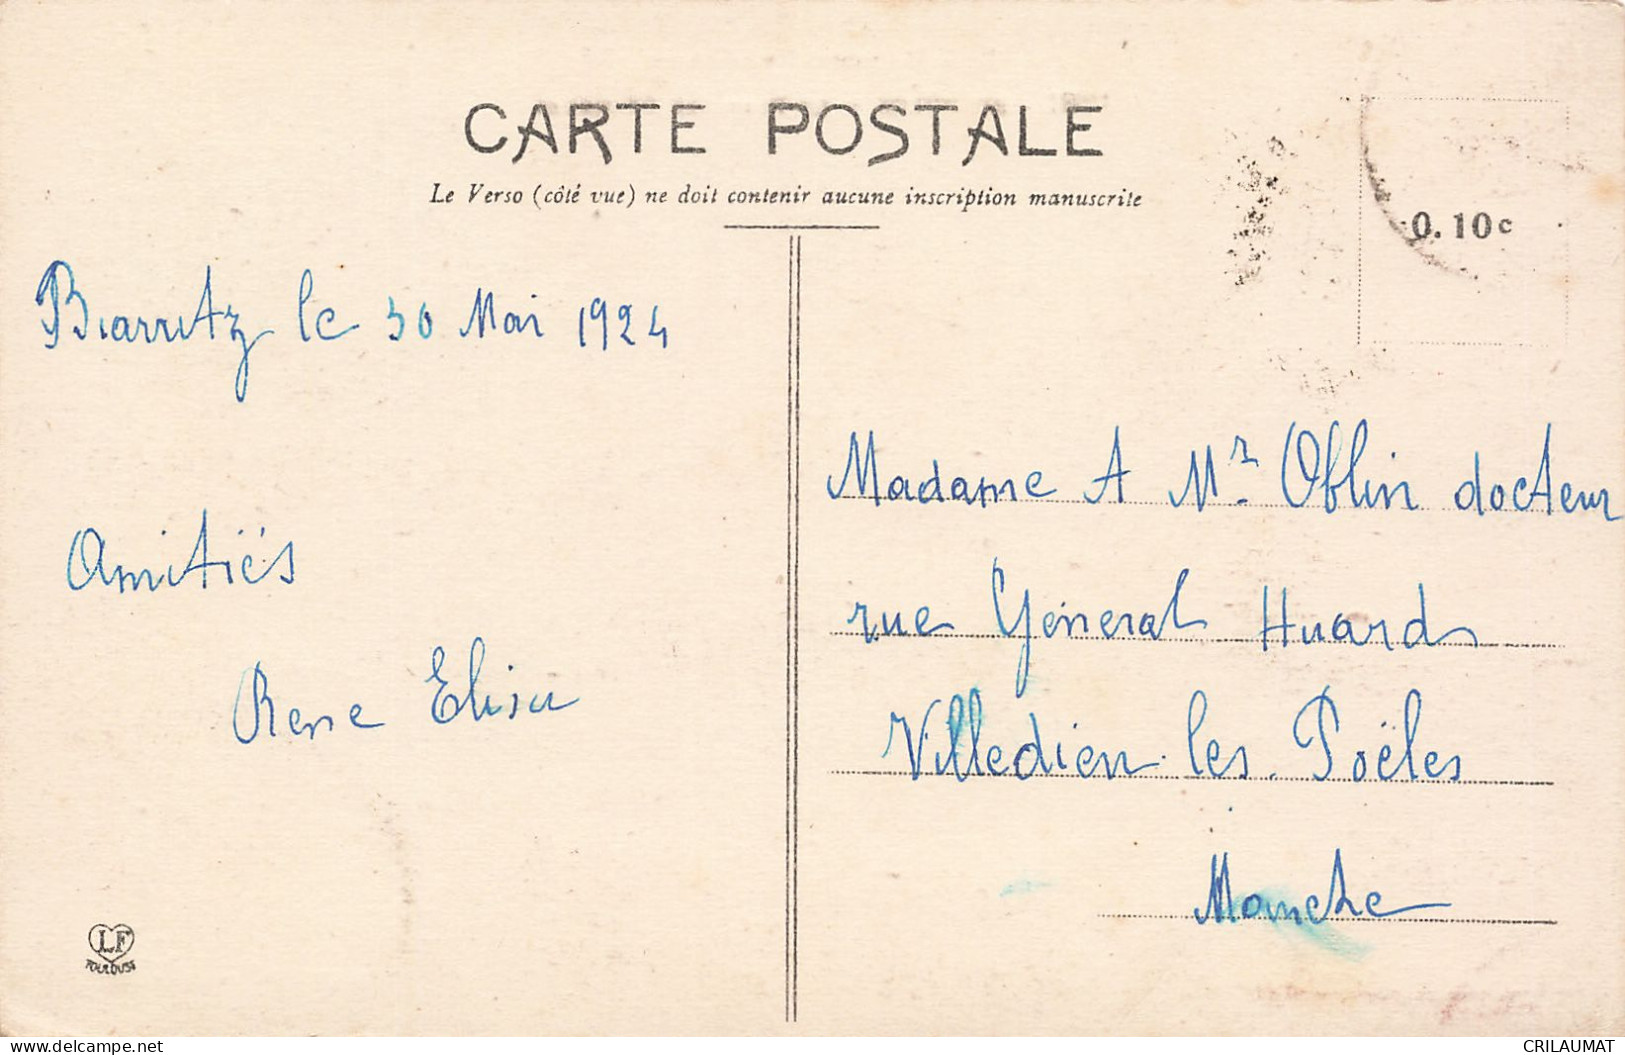 CARTE POSTALE
Le Verso (côté vue) ne doit contenir aucune inscription manuscrite
0.10c
Biarritz le 30 Mai 1924
Amitiés
Rene Elisa
Madame A Mr Oblin docteur
rue Géneral Huard
Villedieu les Poëles
Manche
LF
TOULOUSE
www.delcampe.net
CRILAUMAT